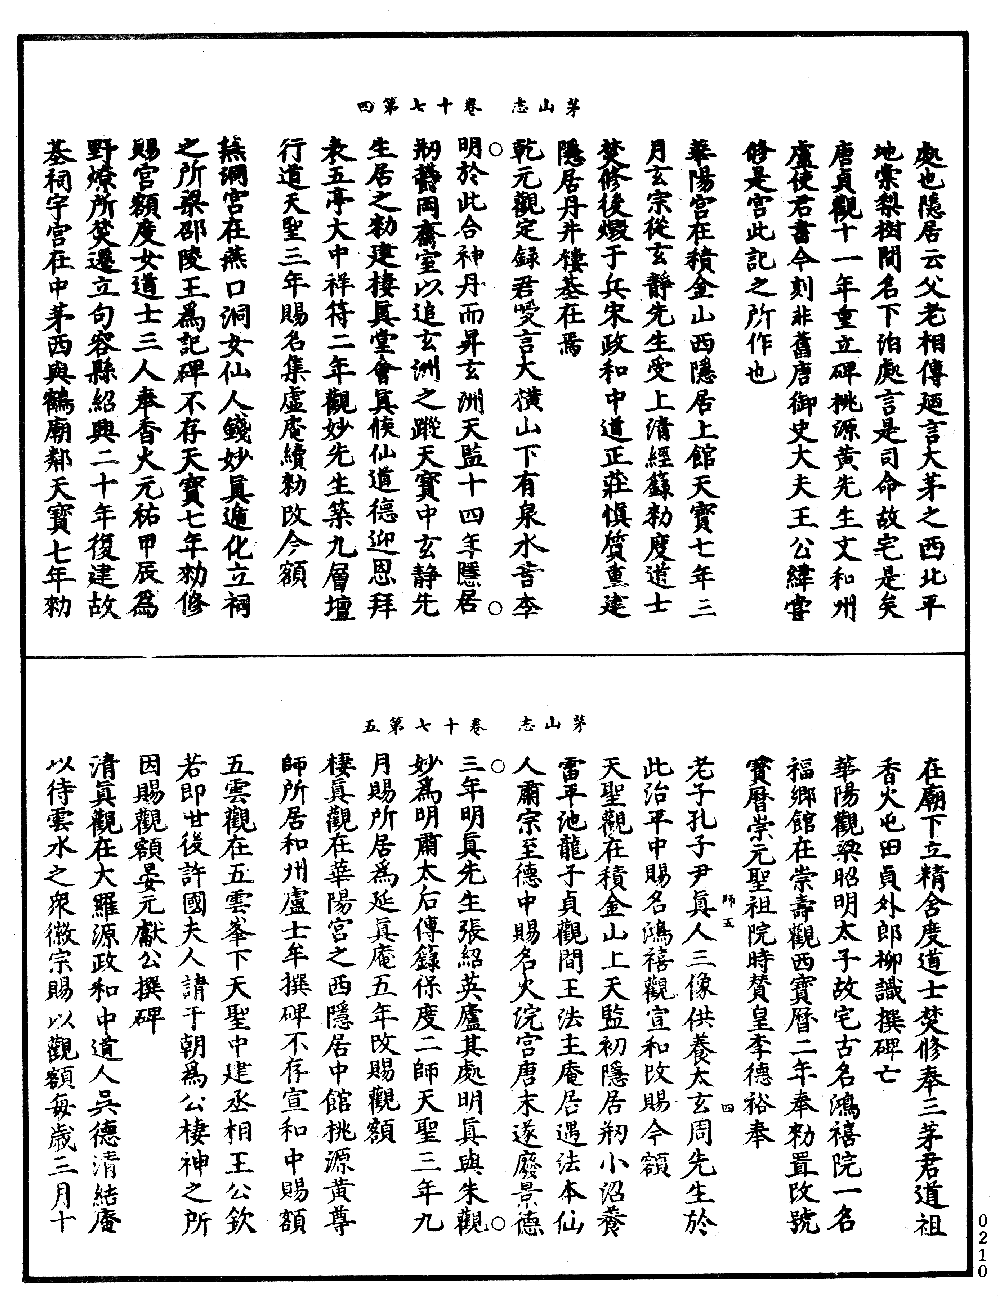 茅山志　卷十七第四
處也隱居云父老相傳迺言大茅之西北平
地棠梨樹間名下泊處言是司命故宅是矣
唐貞觀十一年重立碑桃源黃先生文和州
盧使君書今刻非舊唐御史大夫王公緯嘗
修是宮此記之所作也
華陽宮在積金山西隱居上館天寶七年三
月玄宗從玄靜先生受上清經籙勑度道士
焚修後燬于兵宋政和中道正莊慎質重建
隱居丹井棲基在焉
乾元觀定録君受言大橫山下有泉水昔李
明於此合神丹而昇玄洲天監十四年隱居
剏鬱岡齋室以追玄洲之蹤天寶中玄靜先
生居之勑建棲真堂會真候仙道德迎恩拜
表五亭大中祥符二年觀妙先生築九層壇
行道天聖三年賜名集虛庵續勑改今額
燕洞宮在燕口洞女仙人錢妙真遁化立祠
之所梁邵陵王爲記碑不存天寶七年勑修
賜宮額度女道士三人奉香火元祐甲辰爲
野燎所焚遷立句容縣紹興二十年復建故
基祠宇宮在中茅西與鶴廟鄰天寶七年勑
茅山志　卷十七第五
在廟下立精舍度道士焚修奉三茅君道祖
香火屯田員外郎柳識撰碑亡
華陽觀梁昭明太子故宅古名鴻禧院一名
福鄉館在崇壽觀西寶曆二年奉勑置改號
寶曆崇元聖祖院時賛皇李德裕奉
老子孔子尹真人三像供養太玄周先生於
師五　四
此治平中賜名鴻禧觀宣和改賜今額
天聖觀在積金山上天監初隱居剏小沼養
雷平池龍子貞觀間王法主庵居遇法本仙
人肅宗至德中賜名火浣宮唐末遂廢景德
三年明真先生張紹英廬其處明真與朱觀
妙爲明肅太后傳籙保度二師天聖三年九
月賜所居爲延真庵五年改賜觀額
棲真觀在華陽宮之西隱居中館桃源黃尊
師所居和州盧士牟撰碑不存宣和中賜額
五雲觀在五雲峯下天聖中建丞相王公欽
若即世後許國夫人請于朝爲公棲神之所
因賜觀額晏元獻公撰碑
清真觀在大羅源政和中道人吳德清結庵
以待雲水之衆徽宗賜以觀額每歲三月十
0210